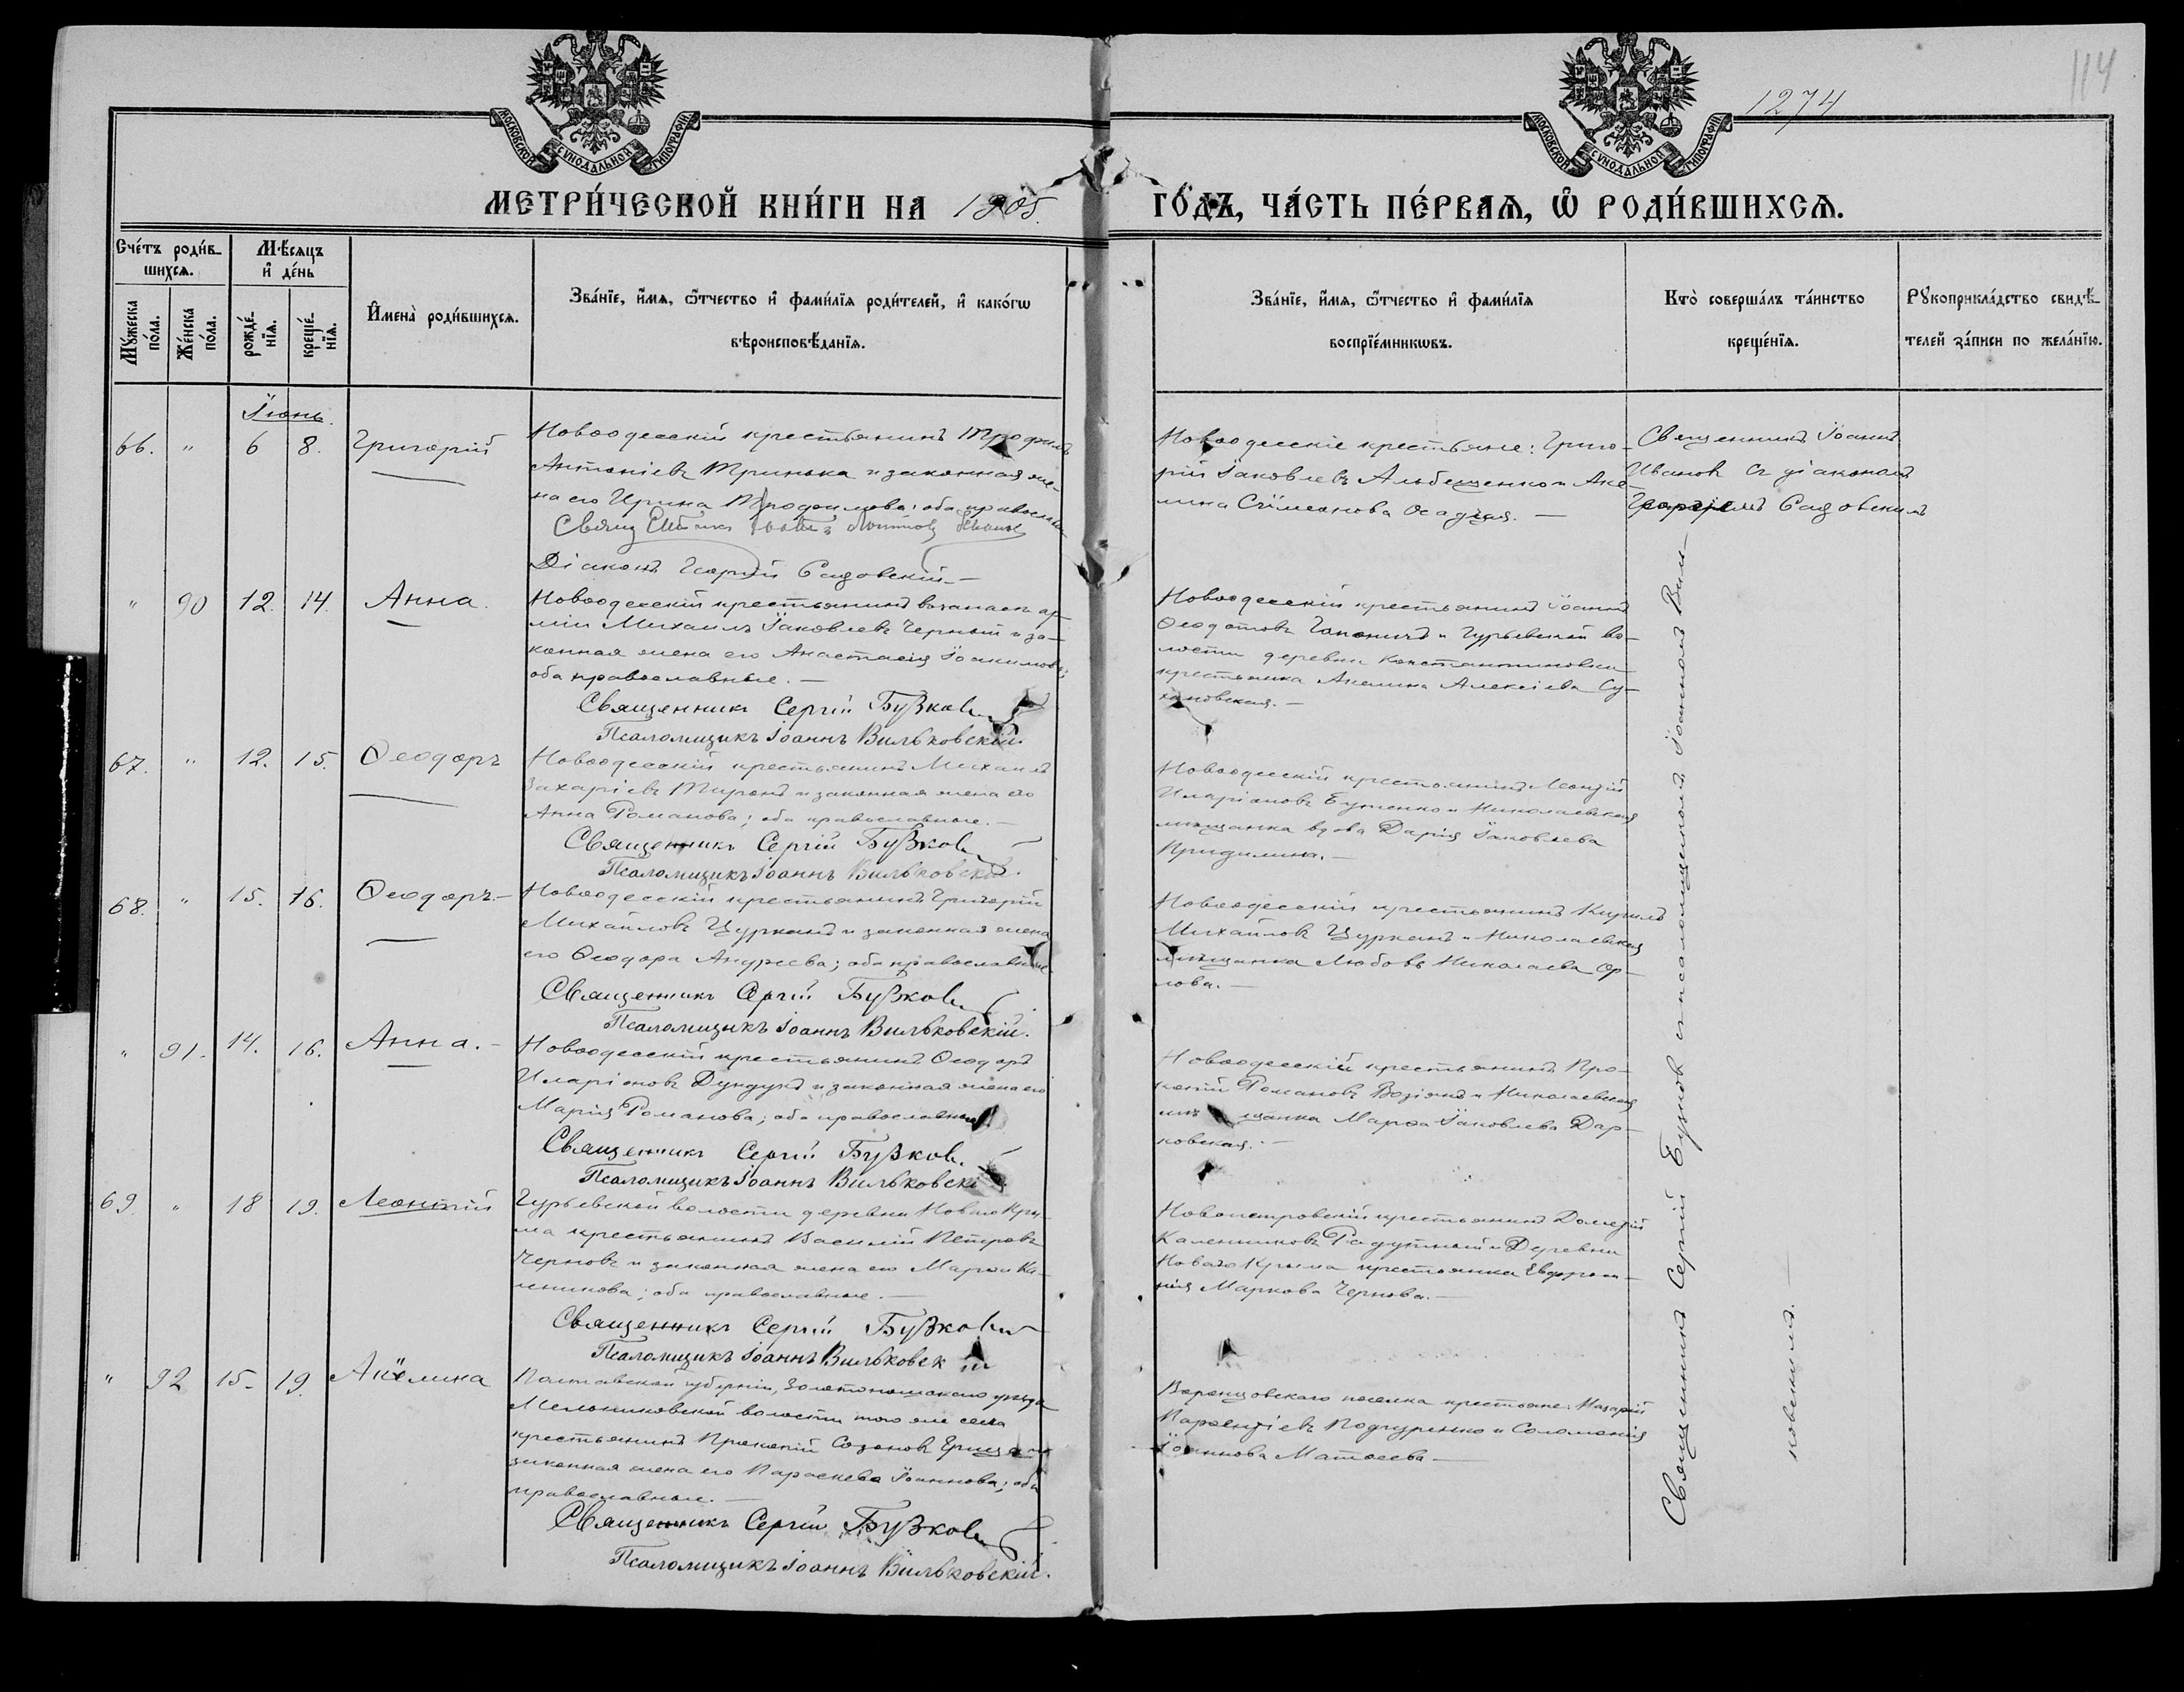 114
1274
МОСКОВСКОЙ СѴНОДАЛЬНОЙ ТИПОГРАФІИ
МОСКОВСКОЙ СѴНОДАЛЬНОЙ ТИПОГРАФІИ
МЕТРИ́ЧЕСКОЙ КНИ́ГИ НА 1905. ГО́ДЪ, ЧА́СТЬ ПЕ́РВАѦ, Ѡ҆ РОДИ́ВШИХСѦ.
Сче́тъ роди́в-
шихсѧ.
Мꙋ́жеска по́ла.
Же́нска по́ла.
Мѣ́сѧцъ
и҆ де́нь
рожде́нїѧ.
креще́нїѧ.
И҆мена̀ роди́вшихсѧ.
Зва́нїе, и҆́мѧ, ѻ҆́тчество и҆ фами́лїѧ роди́телей, и҆ како́гѡ
вѣроисповѣ́данїѧ.
Зва́нїе, и҆́мѧ, ѻ҆́тчество и҆ фами́лїѧ
воспрїе́мникѡвъ.
Кто̀ соверша́лъ та́инство
креще́нїѧ.
Рꙋкоприкла́дство свидѣ́-
телей за́писи по жела́нїю.
Іюнь.
66. " 6 8. Григорій
Новоодесскій крестьянинъ Трофимъ
Антоніевъ Тринька и законная же-
на его Ирина Трофимова; оба православн
Діаконъ Георгій Садовскій. —
Новоодесскіе крестьяне: Григо-
рій Іаковлевъ Альбещенко и Аки-
лина Сѵмеонова Осадчая. —
Священникъ Іоаннъ
Ивановъ съ діакономъ
Георгіемъ Садовскимъ
" 90 12. 14. Анна.
Новоодесскій крестьянинъ въ запасѣ ар-
міи Михаилъ Іаковлевъ Черный и за-
конная жена его Анастасія Іоакимова;
оба православные. —
Священникъ Сергій Бузков
Псаломщикъ Іоаннъ Вильковскій.
Новоодесскій крестьянинъ Іоаннъ
Ѳеодотовъ Гапоничъ и Гурьевской во-
лости деревни Константиновки
крестьянка Акилина Алексіева Су-
хановская. —
67. " 12. 15. Ѳеодоръ
Новоодесскій крестьянинъ Михаилъ
Захаріевъ Тиронъ и законная жена его
Анна Романова; оба православные. —
Священникъ Сергій Бузков
Псаломщикъ Іоаннъ Вильковскій.
Новоодесскій крестьянинъ Леонтій
Иларіоновъ Бутенко и Николаевская
мѣщанка вдова Дарія Іаковлева
68. " 15. 16. Ѳеодоръ. —
Новоодесскій крестьянинъ Григорій
Михайловъ Цурканъ и законная жена
его Ѳеодора Андреева; оба православные
Священникъ Сергій Бузков
Псаломщикъ Іоаннъ Вильковскій.
Новоодесскій крестьянинъ Кирилъ
Михайловъ Цурканъ и Николаевская
мѣщанка Любовь Николаева Ор-
лова. —
" 91. 14. 16. Анна. —
Новоодесскій крестьянинъ Ѳеодоръ
Иларіоновъ Дундукъ и законная жена его
Марія Романова; оба православные
Священникъ Сергій Бузков
Псаломщикъ Іоаннъ Вильковскі
Новоодесскій крестьянинъ Про-
копій Романовъ Возіянъ и Николаевская
мѣщанка Марѳа Іаковлева Дар-
ковская. —
69. " 18 19. Леонтій
Гурьевской волости деревни Новаго Кры-
ма крестьянинъ Василій Петровъ
Черновъ и законная жена его Марѳа Ка-
линикова; оба православные. —
Священникъ Сергій Бузков
Псаломщикъ Іоаннъ Вильковск ій
Новопетровскій крестьянинъ Дометій
Каленниковъ Радутный и Деревни
Новаго Крыма крестьянка Евфроси-
нія Маркова Чернова. —
" 92 15. 19. Акилина
Полтавской губерніи, Золотоношскаго уѣзда
Мельниковской волости того же села
крестьянинъ Прокопій Созоновъ Грищенко
законная жена его Параскева Іоаннова; оба
православные. —
Священникъ Сергій Бузков
Псаломщикъ Іоаннъ Вильковскій.
Воронцовскаго поселка крестьяне: Назарій
Парѳентіевъ Подчуренко и Соломонія
Іоаннова Матѳеева —
Священникъ Сергій Бузков съ псаломщикомъ Іоанномъ Виль-
ковскимъ. —